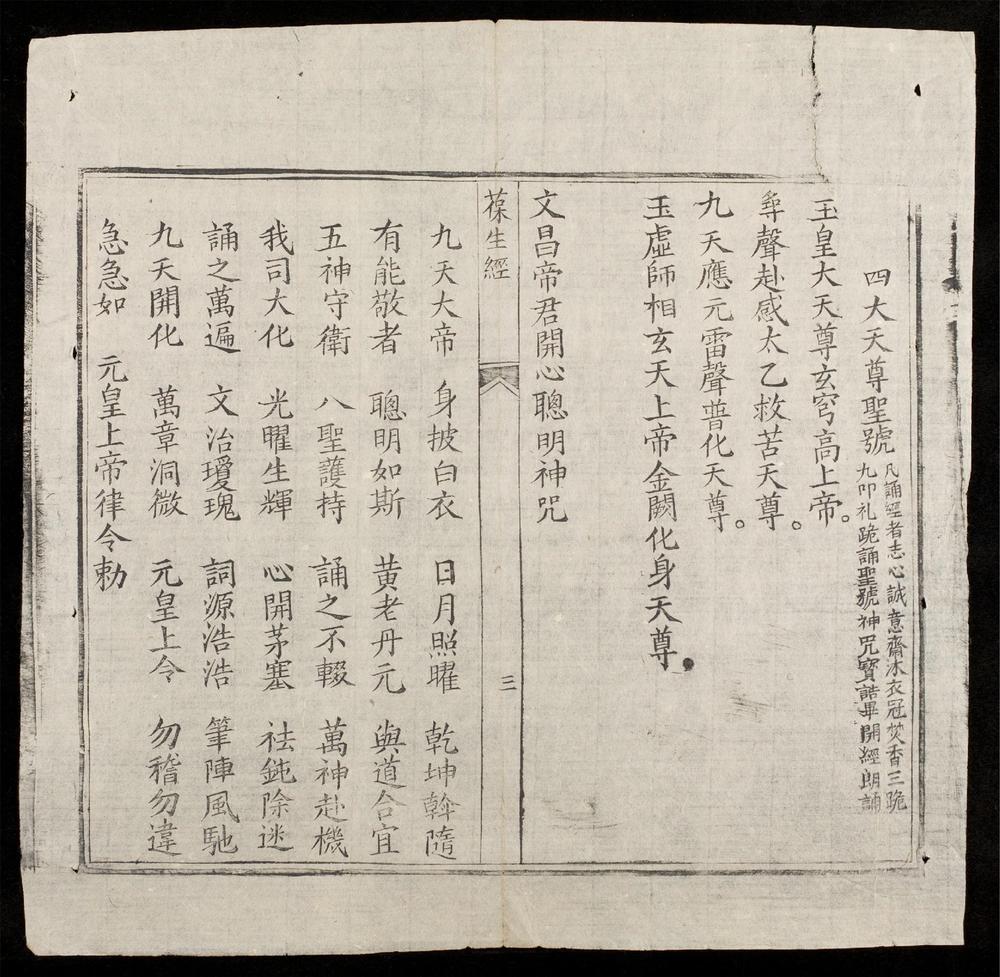 四大天尊聖號
凡誦經者志心誠意齋沐衣冠焚香三跪
九叩礼跪誦聖號神咒寶誥畢開經朗誦
玉皇大天尊玄穹高上帝。
尋聲赴感太乙救苦天尊。
九天應元雷聲普化天尊。
玉虛師相玄天上帝金闕化身天尊。
文昌帝君開心聰明神咒
葆生經
三
九天大帝 身披白衣 日月照曜 乾坤斡隨
有能敬者 聰明如斯 黃老丹元 與道合宜
五神守衛 八聖護持 誦之不輟 萬神赴機
我司大化 光曜生輝 心開茅塞 祛鈍除迷
誦之萬遍 文治瓊瑰 詞源浩浩 筆陣風馳
九天開化 萬章洞微 元皇上令 勿稽勿違
急急如 元皇上帝律令勅